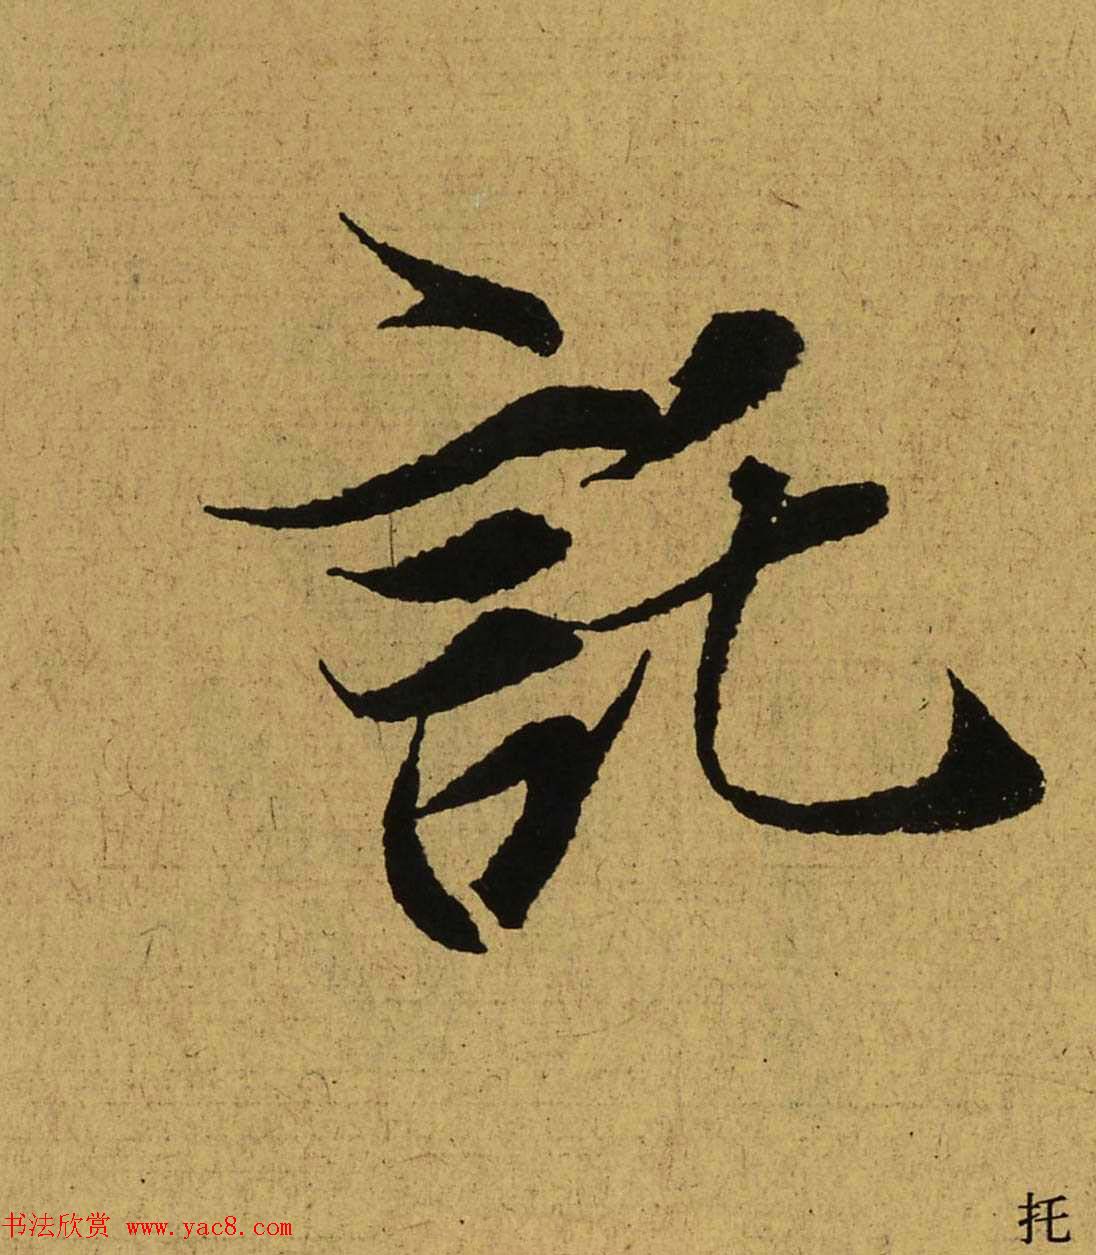 託
托
书法欣赏 www.yac8.com